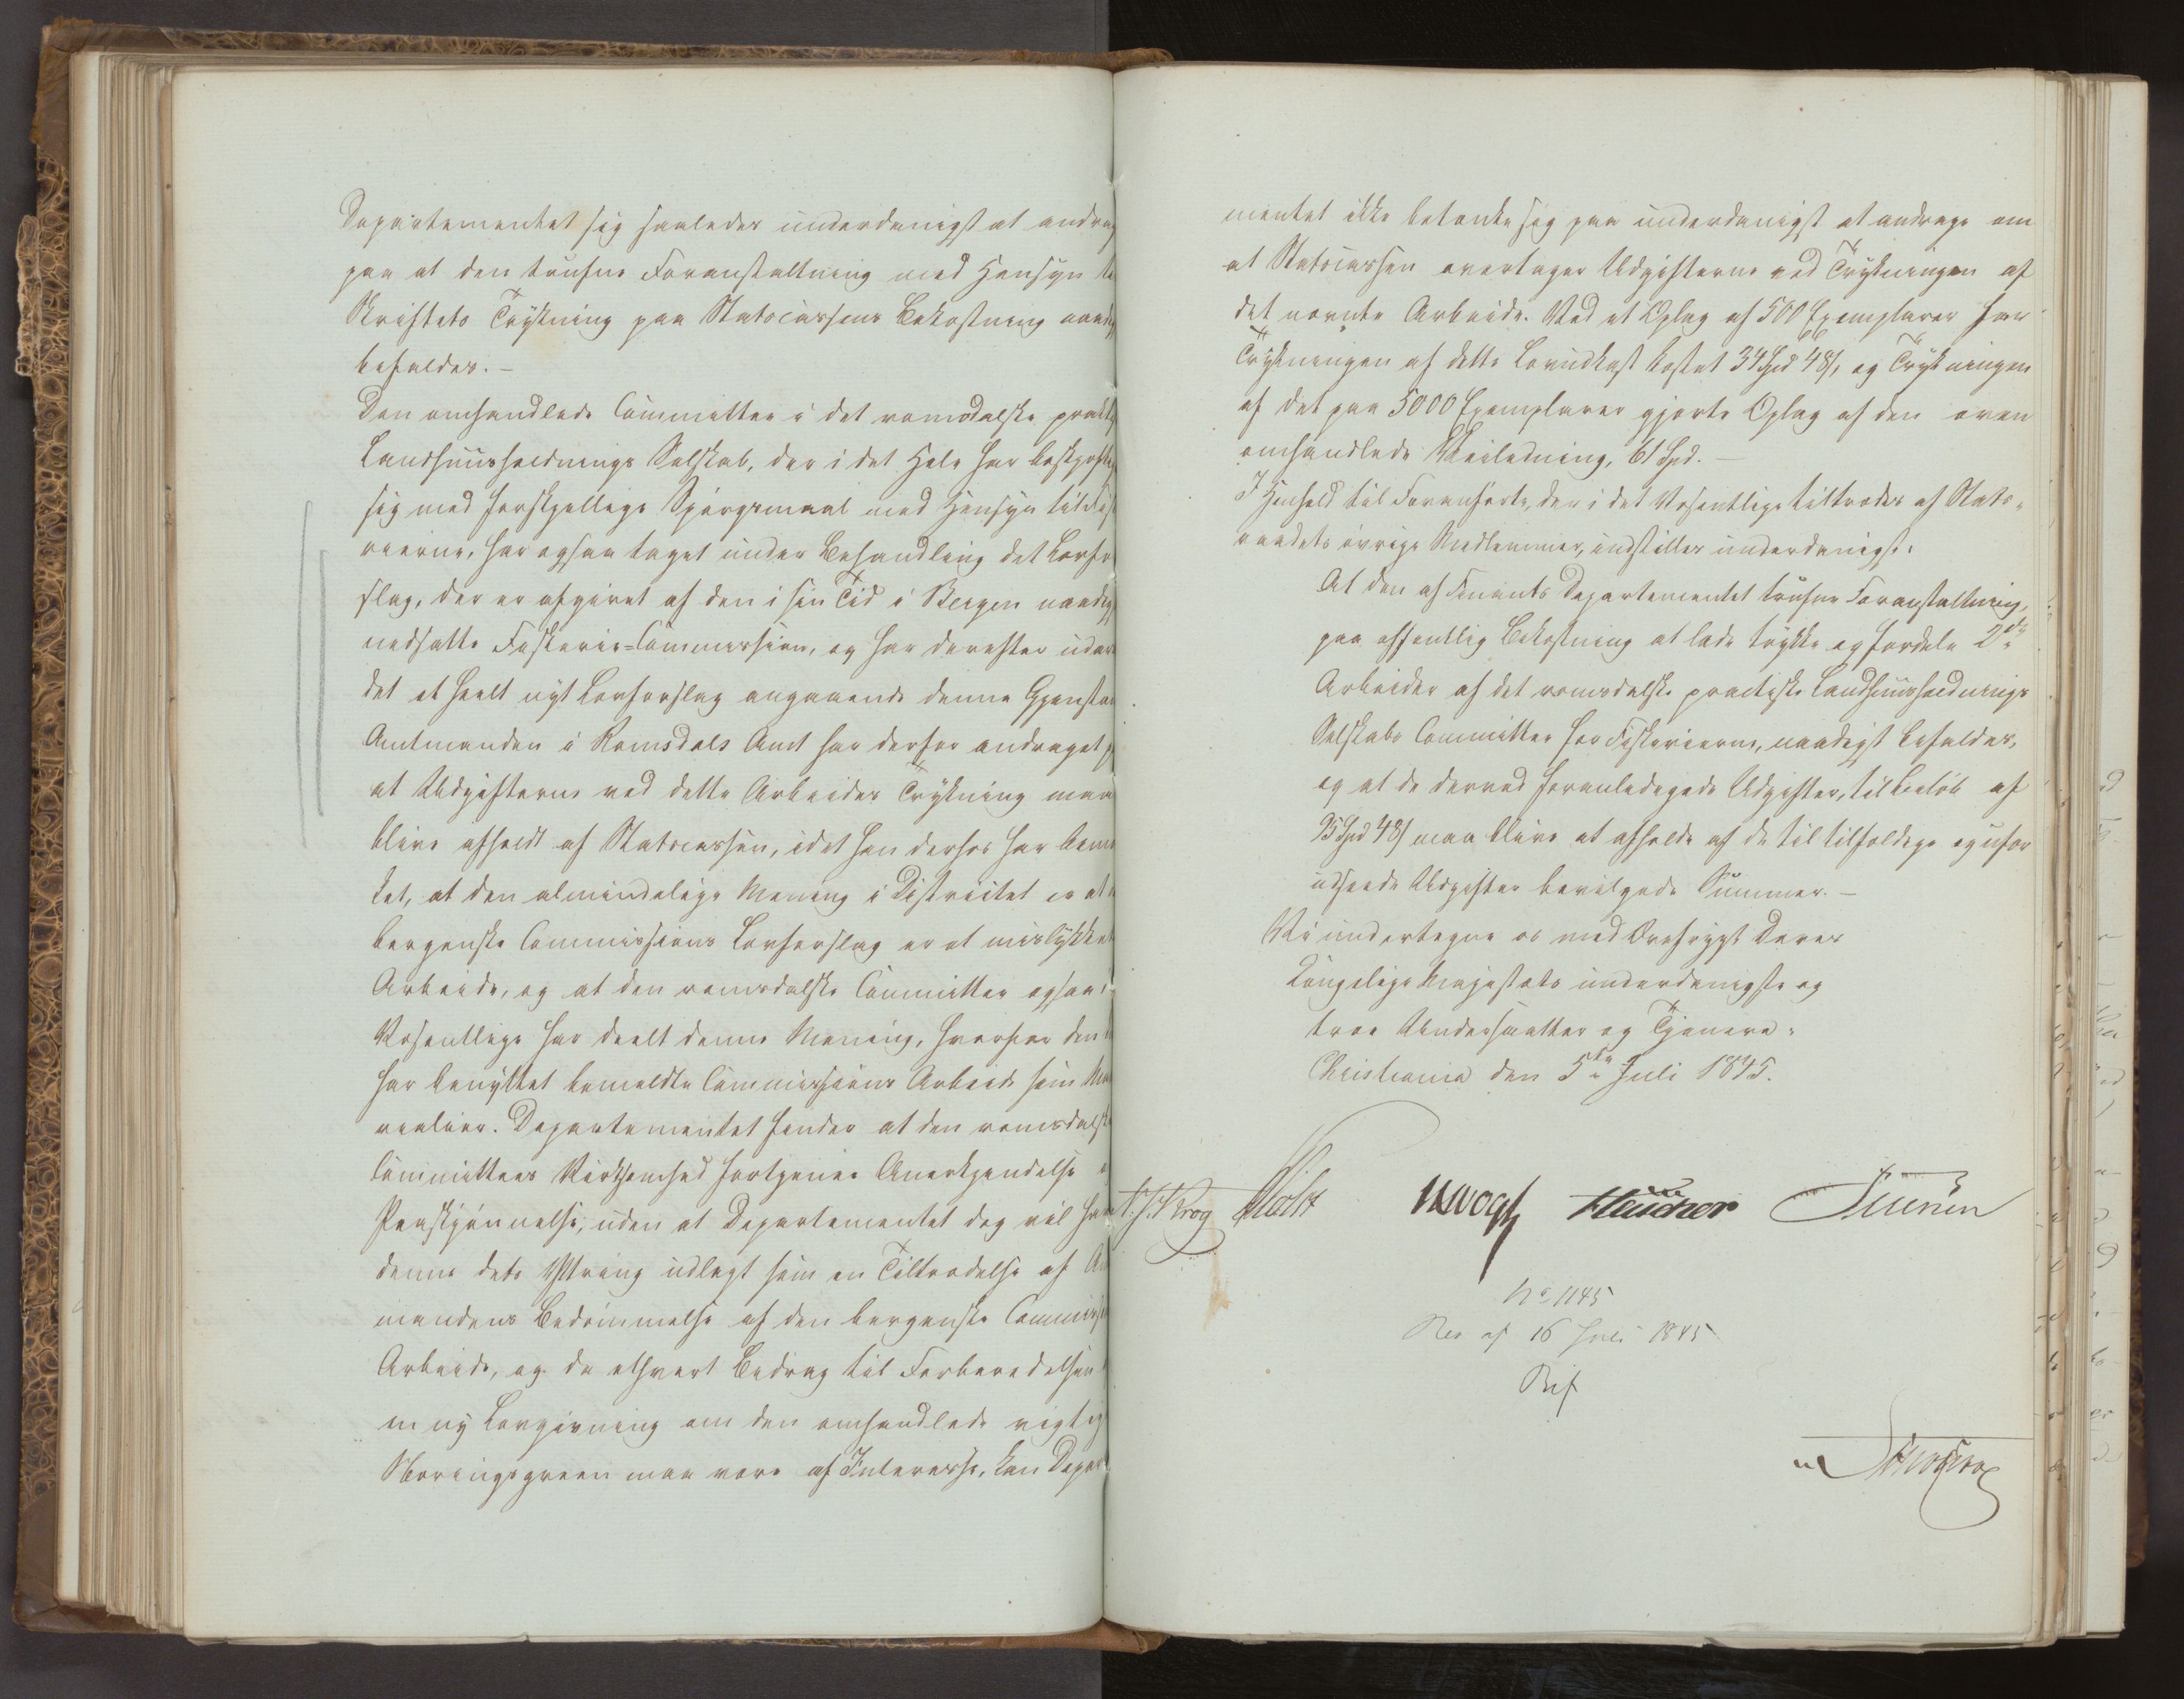 Departementet sig saaledes underdanigst at andrag
paa at den trufne Foranstaltning med Hensyn
Skriftets Trykning paa Statscassens Bekostning naad
befaldes. –
Den omhandlede Committee i det romsdalske prakt
Landhuusholdnings Selskab, der i det Hele har beskjæft
sig med forskjellige Spörgsmaal med Hensyn til Fisk
rierne, har ogsaa taget under Behandling det Lovfor
slag, der er afgivet af den i sin Tid i Bergen naadig
nedsatte Fiskerie-Commission, og har derefter udar
det et heelt nyt Lovforslag angaaende denne Gjenstan
Amtmanden i Romsdals Amt har derfor andraget p
at Udgifterne ved dette Arbeides Trykning maa
blive afholdt af Statscassen, idet han derhos har bemær
ket, at den almindelige Mening i Districtet er at
bergenske Commissions Lovforslag er et mislykket
Arbeide, og at den romsdalske Committee ogsaa i
Væsentlige har deelt denne Mening, hvorfor den
har benyttet bemeldte Commissions Arbeide som Ma
rialier. Departementet finder at den romsdalsk
Committees Virksomhed fortjener Anerkjendelse
Paaskjönnelse, uden at Departementet dog vil ha
denne dets Yttring udlagt som en Tiltrædelse af A
mandens Bedömmelse af den bergenske Commiss
Arbeide, og da ethvert Bidrag til Forberedelsen
en ny Lovgivning om den omhandlede vigtig
Næringsgreen maa være af Interesse, kan Depar
mentet ikke betænke sig paa underdanigst at andrage om
at Statscassen overtager Udgifterne ved Trykningen af
det nævnte Arbeide. Ved et Oplag af 500 Exemplarer har
Trykningen af dette Lovudkast kostet 34 Spd 48 s, og Trykningen
af det paa 5000 Exemplarer gjorte Oplag af den oven
omhandlede Veiledning, 61 Spd. –
I Henhold til Foranförte, der i det Væsentlige tiltrædes af Stats-
raadets övrige Medlemmer, indstilles underdanigst:
At den af Finants Departementet trufne Foranstaltning,
paa offentlig Bekostning at lade trykke og fordele 2de
Arbeider af det romsdalske practiske Landhuusholdnings
Selskabs Committee for Fiskerierne, naadigst befaldes,
og at de derved foranledigede Udgifter, til Beløb af
95 Spd 48 s maa blive at afholde af de til tilfældige og ufor
udseede Udgifter bevilgede Summer. –
Vi undertegne os med Ærefrygt Deres
Kongelige Majestæts underdanigste og
troe Undersaatter og Tjenere.
Christiania den 5te Juli 1845.
Krog Holst Vogt
No 1145
Res af 16 Juli 1845